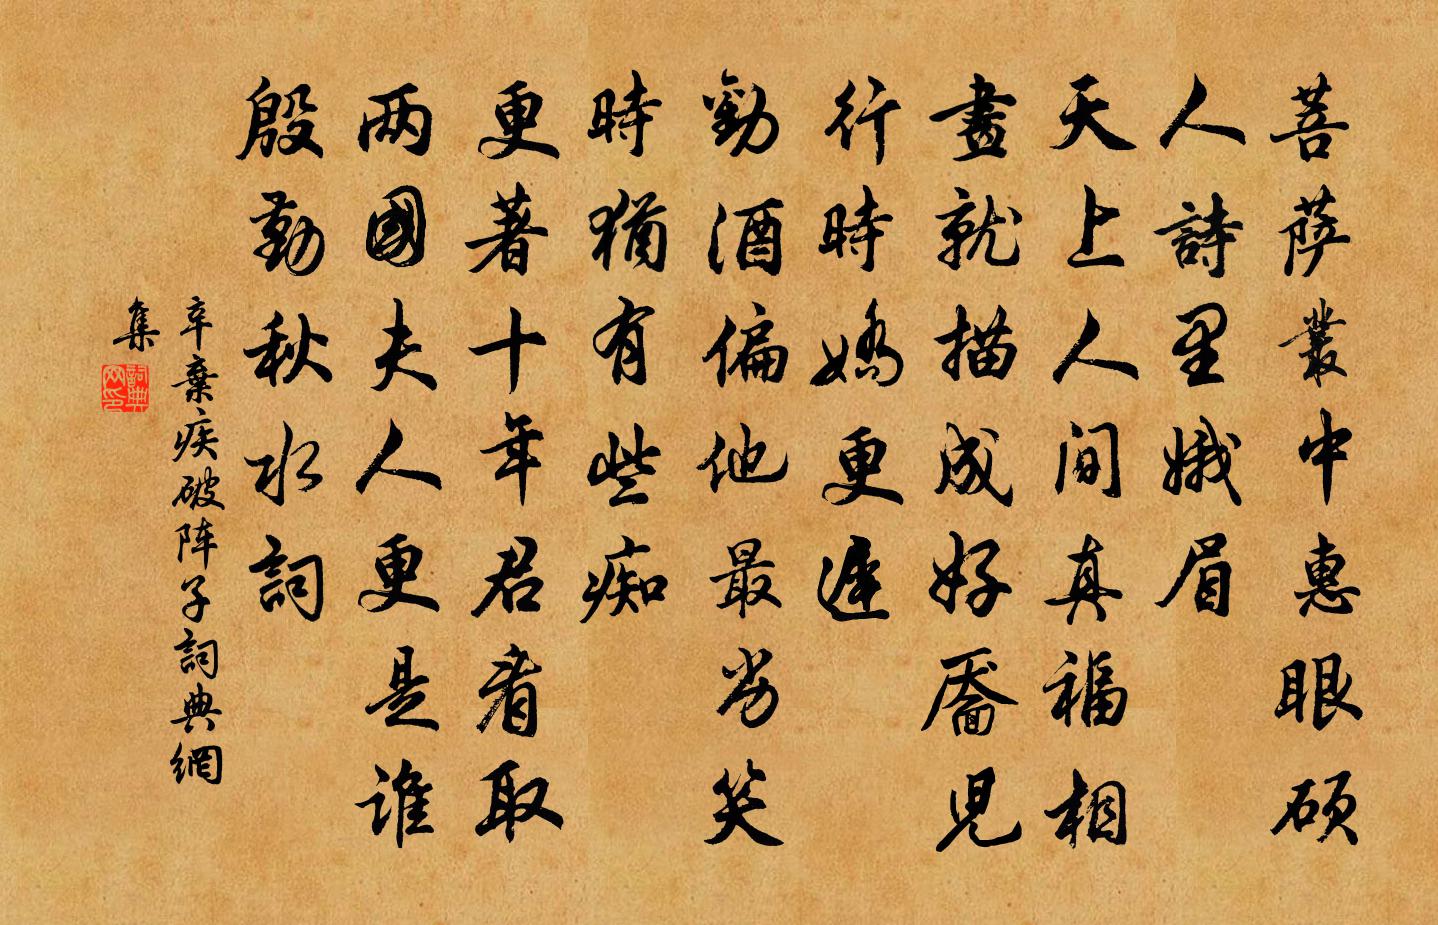 菩萨叢中惠眼硕
人詩里娥眉
天上人间真福相
畫就描成好靥兒
行時嬌更遲
勸酒偏他最劣笑
時猶有些痴
更著十年君看取
两國夫人更是谁
殷勤秋水詞
辛棄疾破阵子詞典網
集
詞典网印